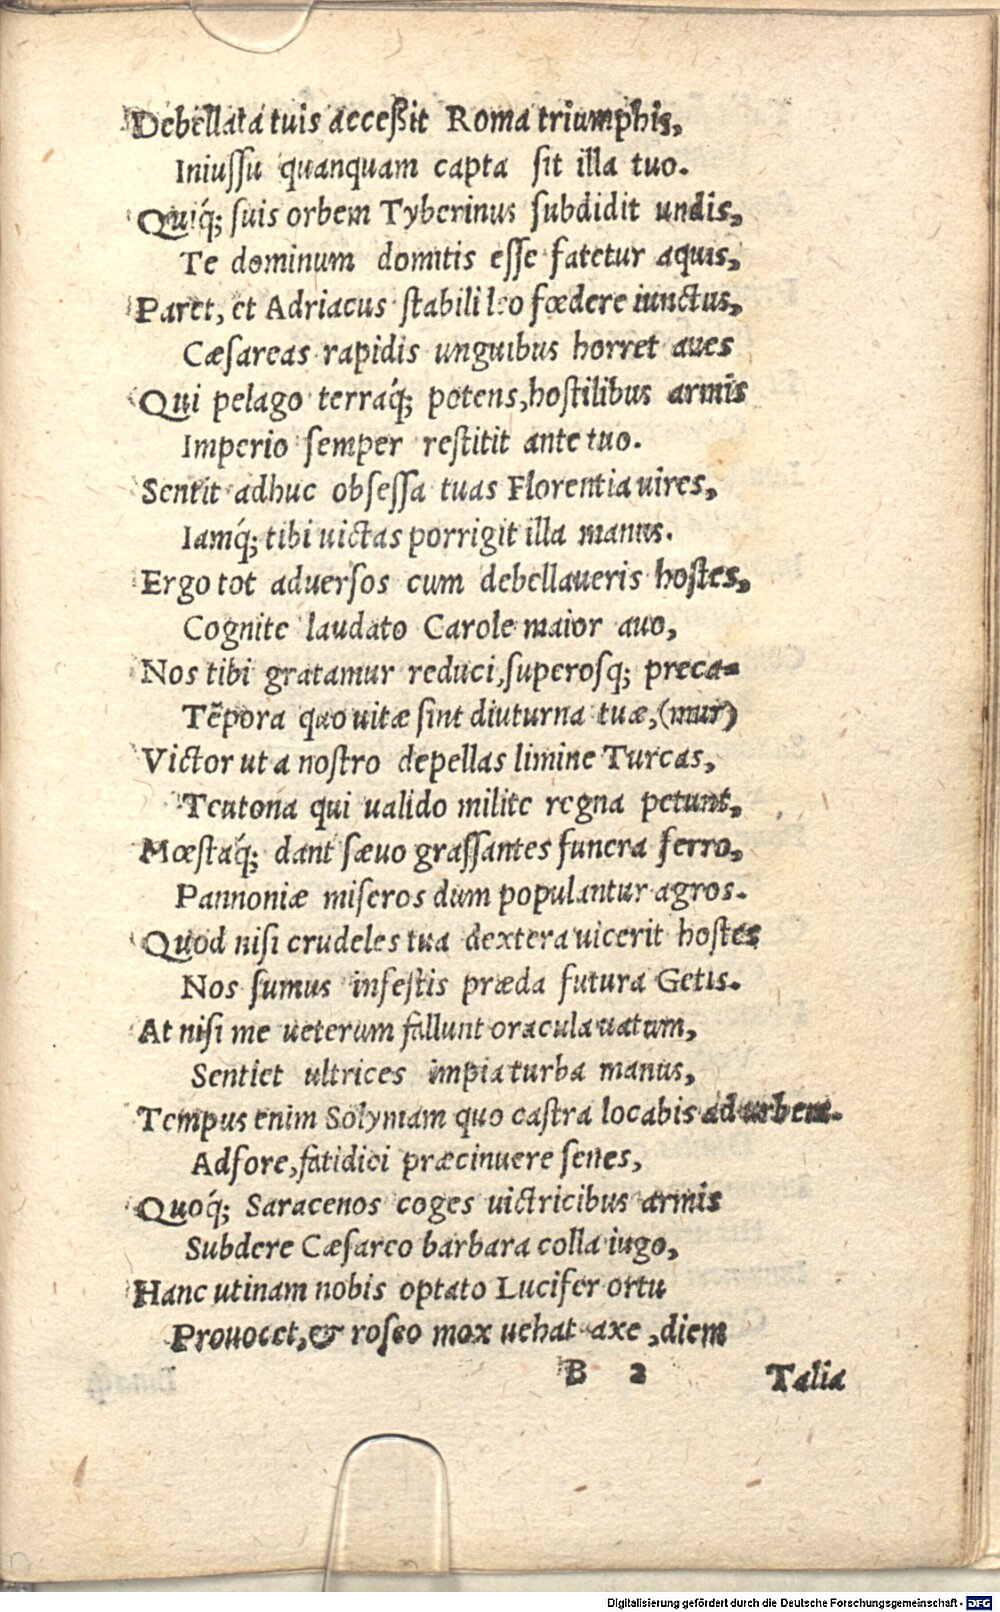 Debellata tuis acceßit Roma triumphis,
Iniuſſu quanquam capta ſit illa tuo.
Quiq́; ſuis orbem Tyberinus ſubdidit undis,
Te dominum domitis eſſe fatetur aquis,
Paret, et Adriacus ſtabili leo fœdere iunctus,
Cæſareas rapidis unguibus horret aues
Qui pelago terraq́; potens, hoſtilibus armis
Imperio ſemper reſtitit ante tuo.
Sentit adhuc obſeſſa tuas Florentia uires,
Iamq́; tibi uictas porrigit illa manus.
Ergo tot aduerſos cum debellaueris hoſtes,
Cognite laudato Carole maior auo,
Nos tibi gratamur reduci, ſuperosq; preca-
Tēpora quo uitæ ſint diuturna tuæ, (mur)
Victor ut a noſtro depellas limine Turcas,
Teutona qui ualido milite regna petunt,
Mœſtaq́; dant ſæuo graſſantes funera ferro,
Pannoniæ miſeros dum populantur agros.
Quod niſi crudeles tua dextera uicerit hoſtes
Nos ſumus infeſtis præda futura Getis.
At niſi me ueterum fallunt oracula uatum,
Sentiet ultrices impia turba manus,
Tempus enim Solymam quo caſtra locabis ad urbem.
Adfore, fatidici præcinuere ſenes,
Quoq́; Saracenos coges uictricibus armis
Subdere Cæſareo barbara colla iugo,
Hanc utinam nobis optato Lucifer ortu
Prouocet, & roſeo mox uehat axe, diem
B 2 Talia
Digitalisierung gefördert durch die Deutsche Forschungsgemeinschaft - DFG